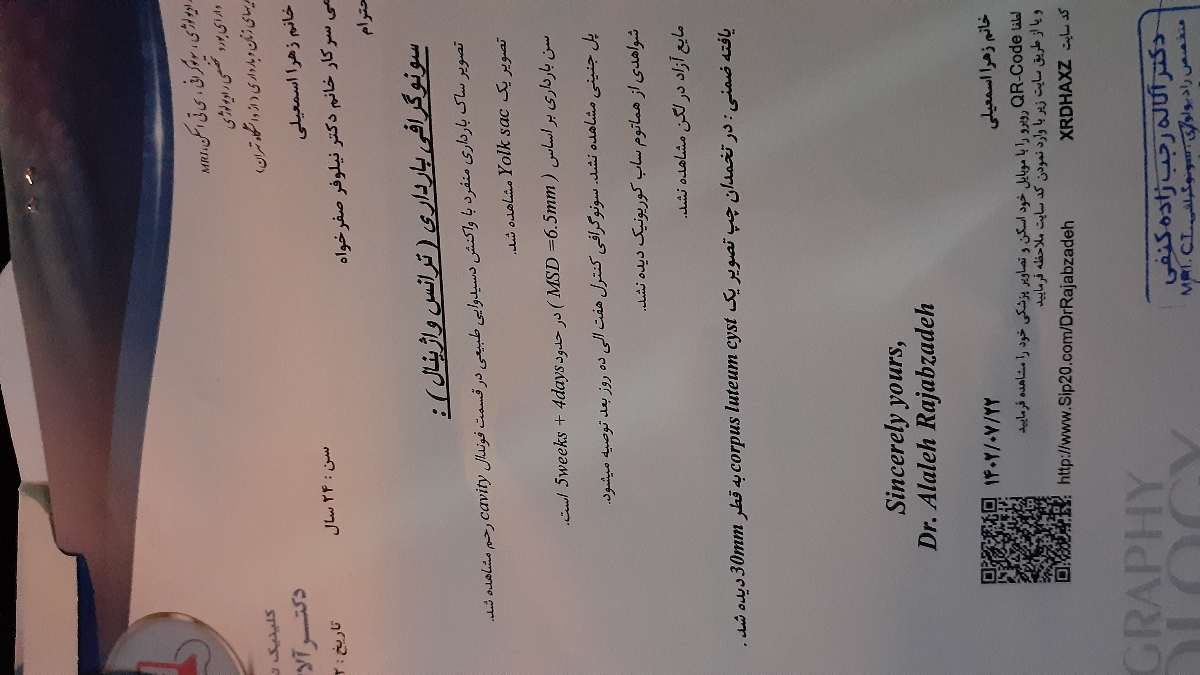 رادیولوژی، سونوگرافی، سی تی اسکن، MRI
دارای بورد تخصصی رادیولوژی
زنان و بارداری (از دانشگاه تهران)
کلینیک
دکتر آلا
خانم زهرا اسمعیلی
سرکار خانم دکتر نیلوفر صفرخواه
سن : ۲۴ سال
تاریخ :
احترام
سونوگرافی بارداری ( ترانس واژینال ) :
تصویر ساک بارداری منفرد با واکنش دسیدوایی طبیعی در قسمت فوندال cavity رحم مشاهده شد.
تصویر یک Yolk sac مشاهده شد.
سن بارداری بر اساس ( MSD =6.5mm ) در حدود 5weeks + 4days است.
پل جنینی مشاهده نشد. سونوگرافی کنترل هفت الی ده روز بعد توصیه میشود.
شواهدی از هماتوم ساب کوریونیک دیده نشد.
مایع آزاد در لگن مشاهده نشد.
یافته ضمنی : در تخمدان چپ تصویر یک corpus luteum cyst به قطر 30mm دیده شد .
Sincerely yours,
Dr. Alaleh Rajabzadeh
خانم زهرا اسمعیلی
۱۴۰۲/۰۷/۲۲
لطفا QR-Code روبرو را با موبایل خود اسکن و تصاویر پزشکی خود را مشاهده فرمایید
و یا از طریق سایت زیر با وارد نمودن کد سایت ملاحظه فرمایید
کد سایت XRDHAXZ
http://www.Sip20.com/DrRajabzadeh
دکتر آلاله رجب زاده کنفی
متخصص رادیولوژی، سونوگرافی
MRI، C.T
GRAPHY